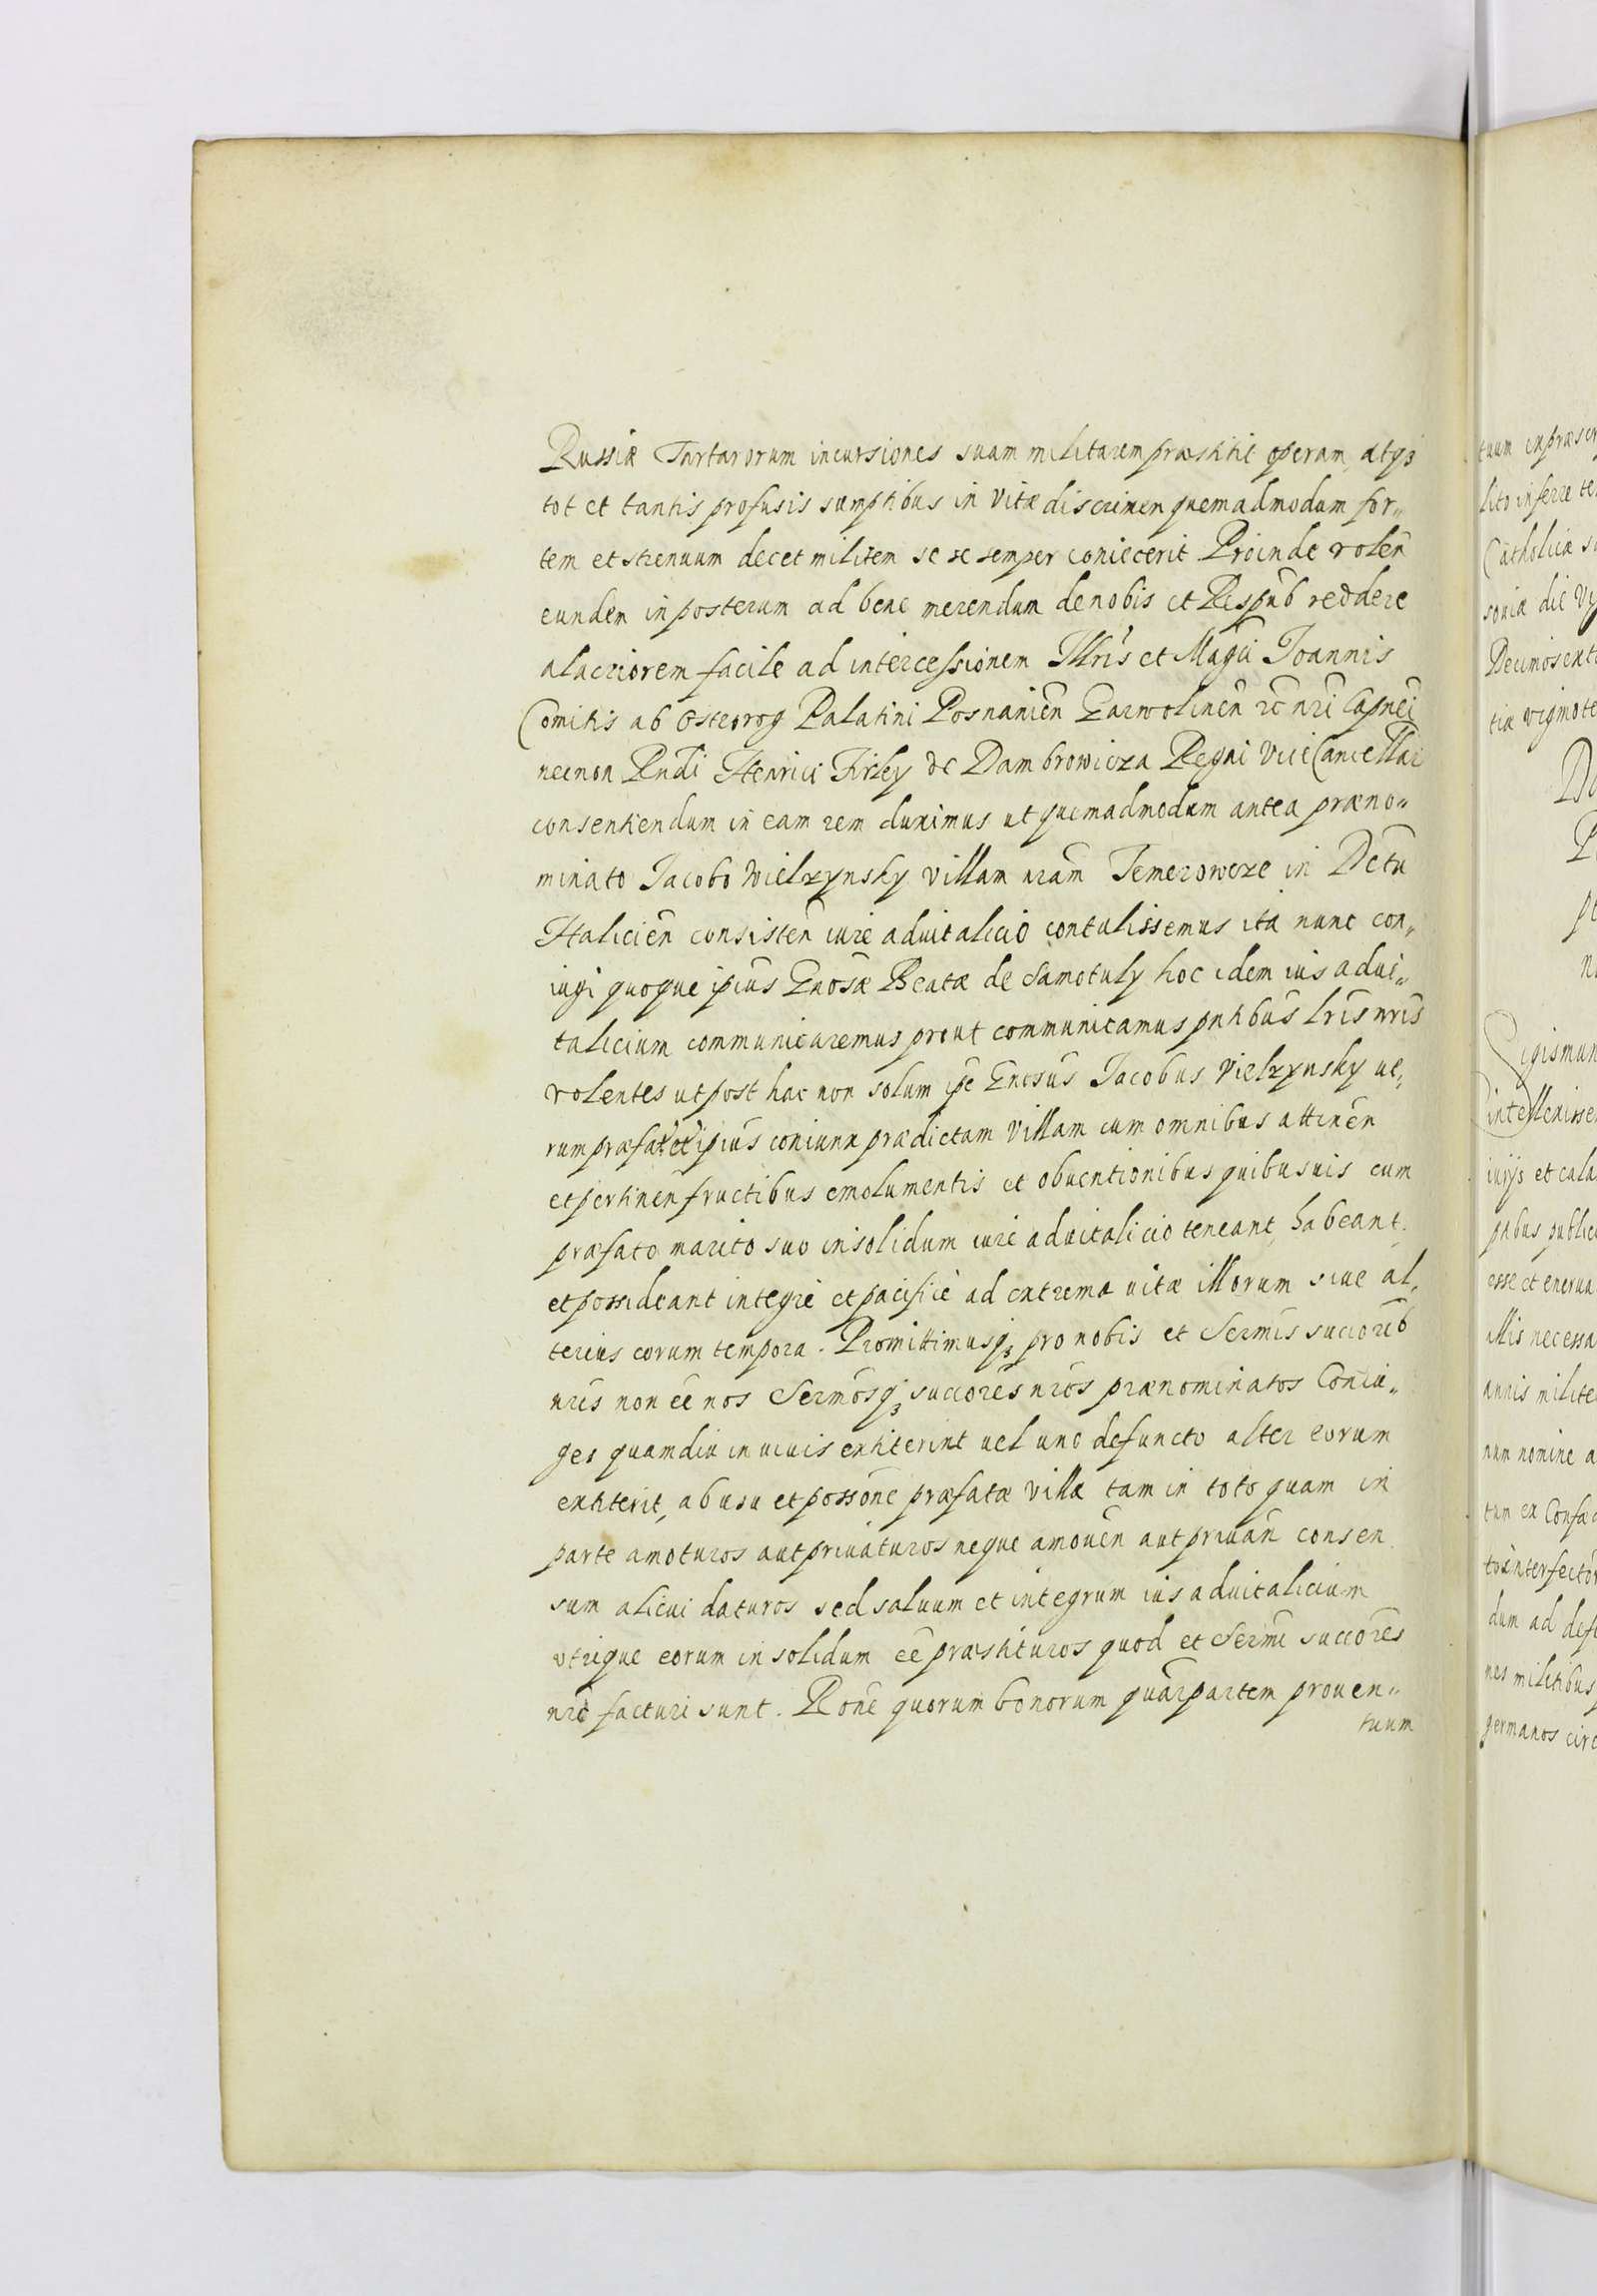 Russiæ Tartarorum incursiones suam militarem præstitit operam, atq3
tot et tantis profusis sumptibus in vitæ discrimen quemadmodum for„
tem et strenuum decet militem se se semper coniecerit Proinde volen̄
eundem in posterum ad bene merendum de nobis et Respub̄ reddere
alacriorem facile ad intercessionem Illris̄ et Magci̅ Joannis
Comitis ab Osteorog Palatini Posnanien̄ Garwolinen̄ rc̄ nri̅ Capnei̅
necnon Rndi̅ Henrici Firley de Dambrowicza Regni ViceCancellar
consentiendum in eam rem duximus ut quemadmodum antea præno„
minato Jacobo Wielzynsky villam nram̄ Temerowcze in Dctu̅
Halicien̄ consisten̄ iure aduitalicio contulissemus ita nunc con„
iugi quoque ipius̄ Gnosǣ Beatæ de Samotuly hoc idem ius adui„
talicium communicaremus prout communicamus pntibus̄ lris̄ nris̄
volentes ut post hac non solum ipe̅ Gnosus̄ Jacobus Vielzynsky ue„
rum præfata et ipius̄ coniunx prædictam villam cum omnibus attinen̄
et pertinen fructibus emolumentis et obuentionibus quibusuis cum
præfato marito suo in solidum iure aduitalicio teneant habeant
et possideant integrè et pacificè ad extrema uitæ illorum siue al„
terius eorum tempora. Promittimusq3 pro nobis et Sermis̄ succorib̄
nris̄ non ee̅ nos Sermosq̄3 succores̄ nros̄ prænominatos Coniu„
ges quamdiu in uiuis extiterint uel uno defuncto alter eorum
extiterit, ab usu et possone̅ præfatæ villæ tam in toto quam in
parte amoturos aut priuaturos neque amouen̄ aut priuan̄ consen
sum alicui daturos sed saluum et integrum ius aduitalicium
utrique eorum in solidum ee̅ præstituros quod et Sermi̅ succores̄
nri̅ facturi sunt. Rone̅ quorum bonorum quar̄ partem prouen„
tuum